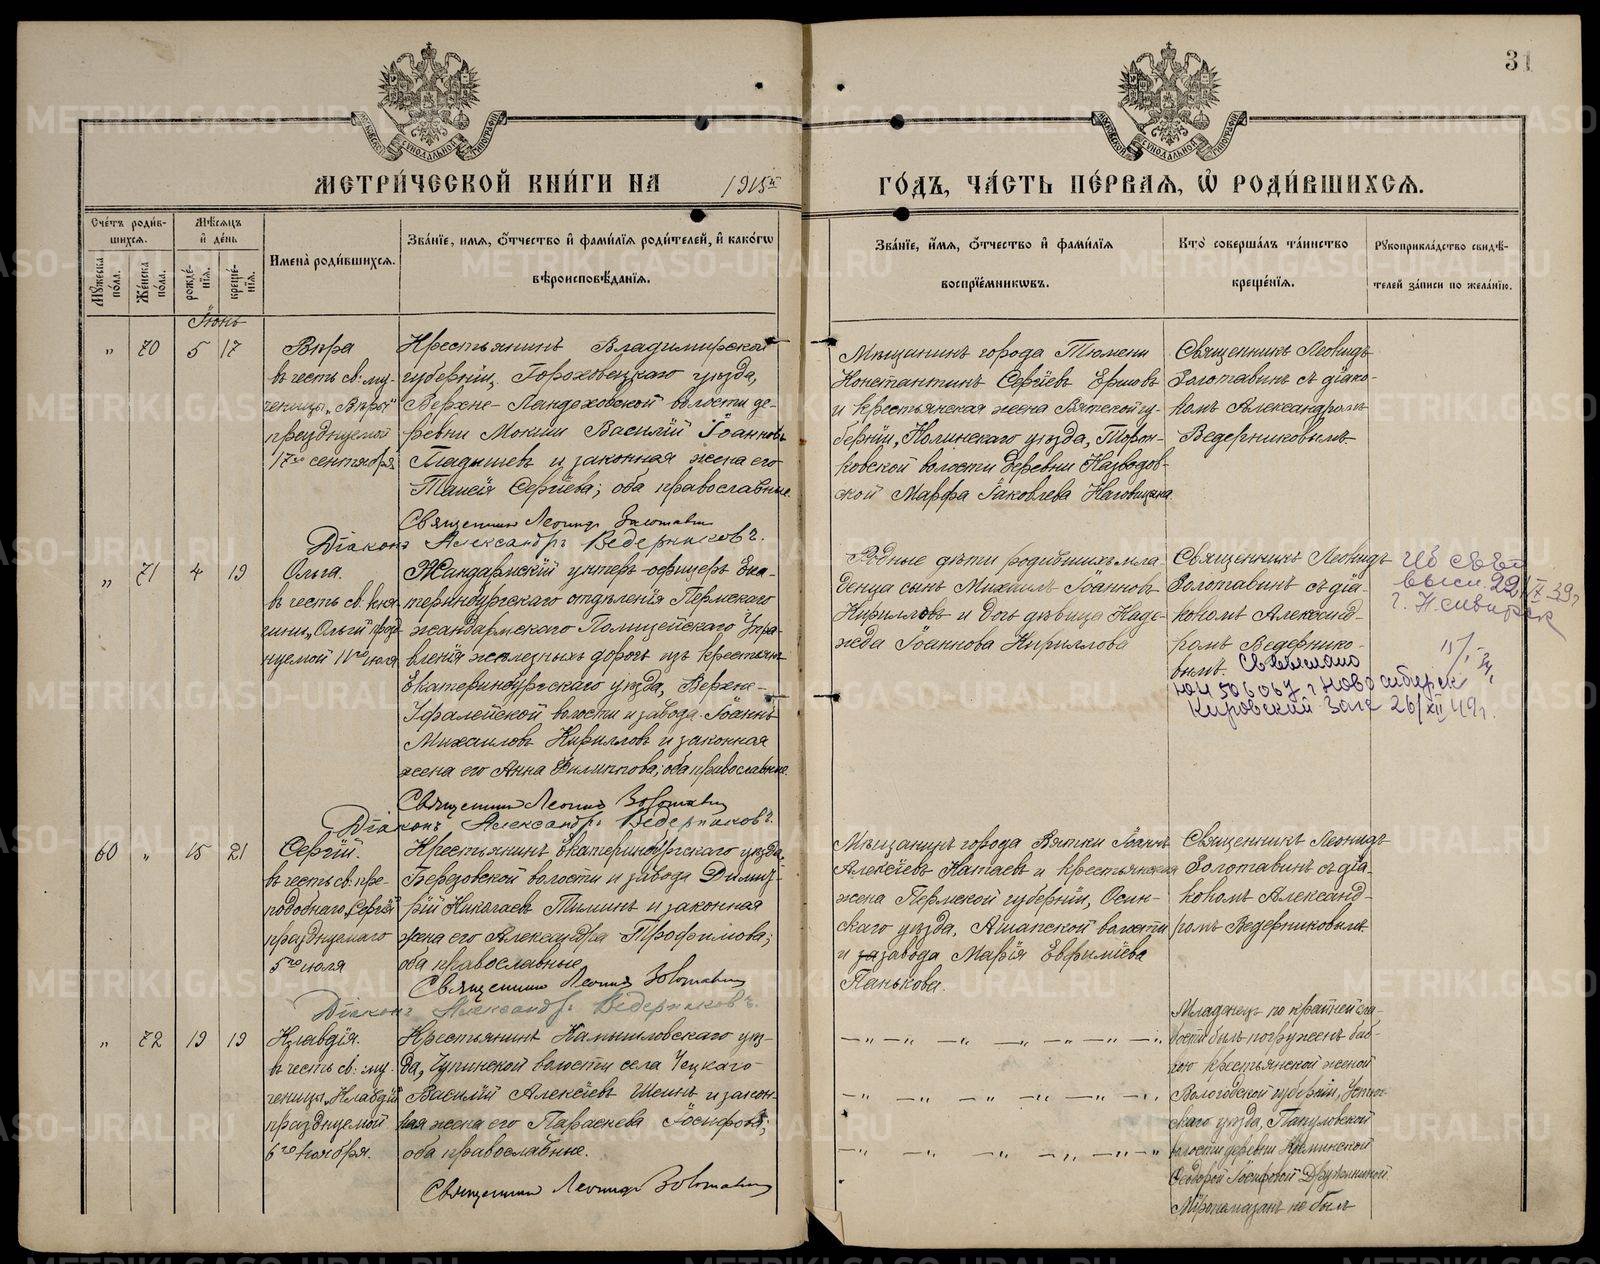 31
МЕТРИ́ЧЕСКОЙ КНИ́ГИ НА 1915й
ГО́ДЪ, ЧА́СТЬ ПЕ́РВАЯ, Ѡ҆ РОДИ́ВШИХСЯ.
Сче́тъ роди́в-
шихся.
Му́жеска по́ла.
Же́нска по́ла.
Мѣ́сяцъ
и҆ де́нь
рожде́нїя.
креще́нїя.
Имена̀ роди́вшихся.
Зва́нїе, имя, ѻ҆́тчество и҆ фами́лїя роди́телей, и҆ како́гѡ
вѣроисповѣ́данїя.
Зва́нїе, и҆́мя, ѻ҆́тчество и҆ фами́лїя
воспрїе́мникѡвъ.
Кто̀ соверша́лъ та́инство
креще́нїя.
Рукоприкла́дство свидѣ́-
телей за́писи по жела́нїю.
Іюнь
" 70 5 17
Вѣра
въ честь св: му-
ченицы „Вѣры"
празднуемой
17го сентября
Крестьянинъ Владимірской
губерніи, Гороховецкаго уѣзда,
Верхне-Ландеховской волости де-
ревни Мокши Василій Іоанновъ
и законная жена его
Таисія Сергіева; оба православные.
Священникъ Леонидъ Золотавинъ
Діаконъ Александръ Ведерниковъ.
Мѣщанинъ города Тюмени
Константинъ Сергіевъ Ершовъ
и крестьянская жена Вятской гу-
берніи, Нолинскаго уѣзда,
волости деревни
Марфа Іаковлева Наговицына
Священникъ Леонидъ
Золотавинъ съ діако-
номъ Александромъ
Ведерниковымъ
" 71 4 19
Ольга.
въ честь св. кня-
гини „Ольги" празд-
нуемой 11го іюля
Жандармскій унтеръ-офицеръ Ека-
теринбургскаго отдѣленія Пермскаго
жандармскаго Полицейскаго Упра-
вленія желѣзныхъ дорогъ изъ крестьянъ
Екатеринбургскаго уѣзда, Верхне-
Уфалейской волости и завода Іоаннъ
Михаиловъ Кирилловъ и законная
жена его Анна Филиппова; оба православные.
Священникъ Леонидъ Золотавинъ
Діаконъ Александръ Ведерниковъ.
Родные дѣти родившихъ мла-
денца сынъ Михаилъ Іоанновъ
Кирилловъ и дочь дѣвица Наде-
жда Іоаннова Кириллова
Священникъ Леонидъ
Золотавинъ съ діа-
кономъ Александ-
ромъ Ведернико-
вымъ.
высл. 22/IX-39г
г. Н.сибирск
Св. выслано
ЮН 506067 г Новосибирск
Кировский Загс 26/XII 49г.
60 " 15 21
Сергій.
въ честь св: пре-
подобнаго „Сергія"
празднуемаго
5го іюля
Крестьянинъ Екатеринбургскаго уѣзда,
Березовской волости и завода Димит-
рій Николаевъ Тиминъ и законная
жена его Александра Трофимова;
оба православные.
Священникъ Леонидъ Золотавинъ
Діаконъ Александръ Ведерниковъ.
Мѣщанинъ города Вятки Іоаннъ
Алексіевъ Катаевъ и крестьянская
жена Пермской губерніи, Осин-
скаго уѣзда, Ашапской волости
и за завода Марія Евфиміева
Панькова.
Священникъ Леонидъ
Золотавинъ съ діа-
кономъ Александ-
ромъ Ведерниковымъ
" 72 19 19
Клавдія.
въ честь св: му-
ченицы „Клавдіи"
празднуемой
6го ноября.
Крестьянинъ Камышловскаго уѣз-
да, волости села
Василій Алексіевъ Шеинъ и закон-
ная жена его Параскева Іосифова;
оба православные.
Священникъ Леонидъ Золотавинъ
Младенецъ по крайней сла-
бости былъ погруженъ баб-
кою крестьянской женой
Вологодской губерніи, Устюж-
скаго уѣзда,
волости деревни
Ѳеодорой Іосифовой Дружининой
Мѵропомазанъ не былъ
METRIKI.GASO-URAL.RU